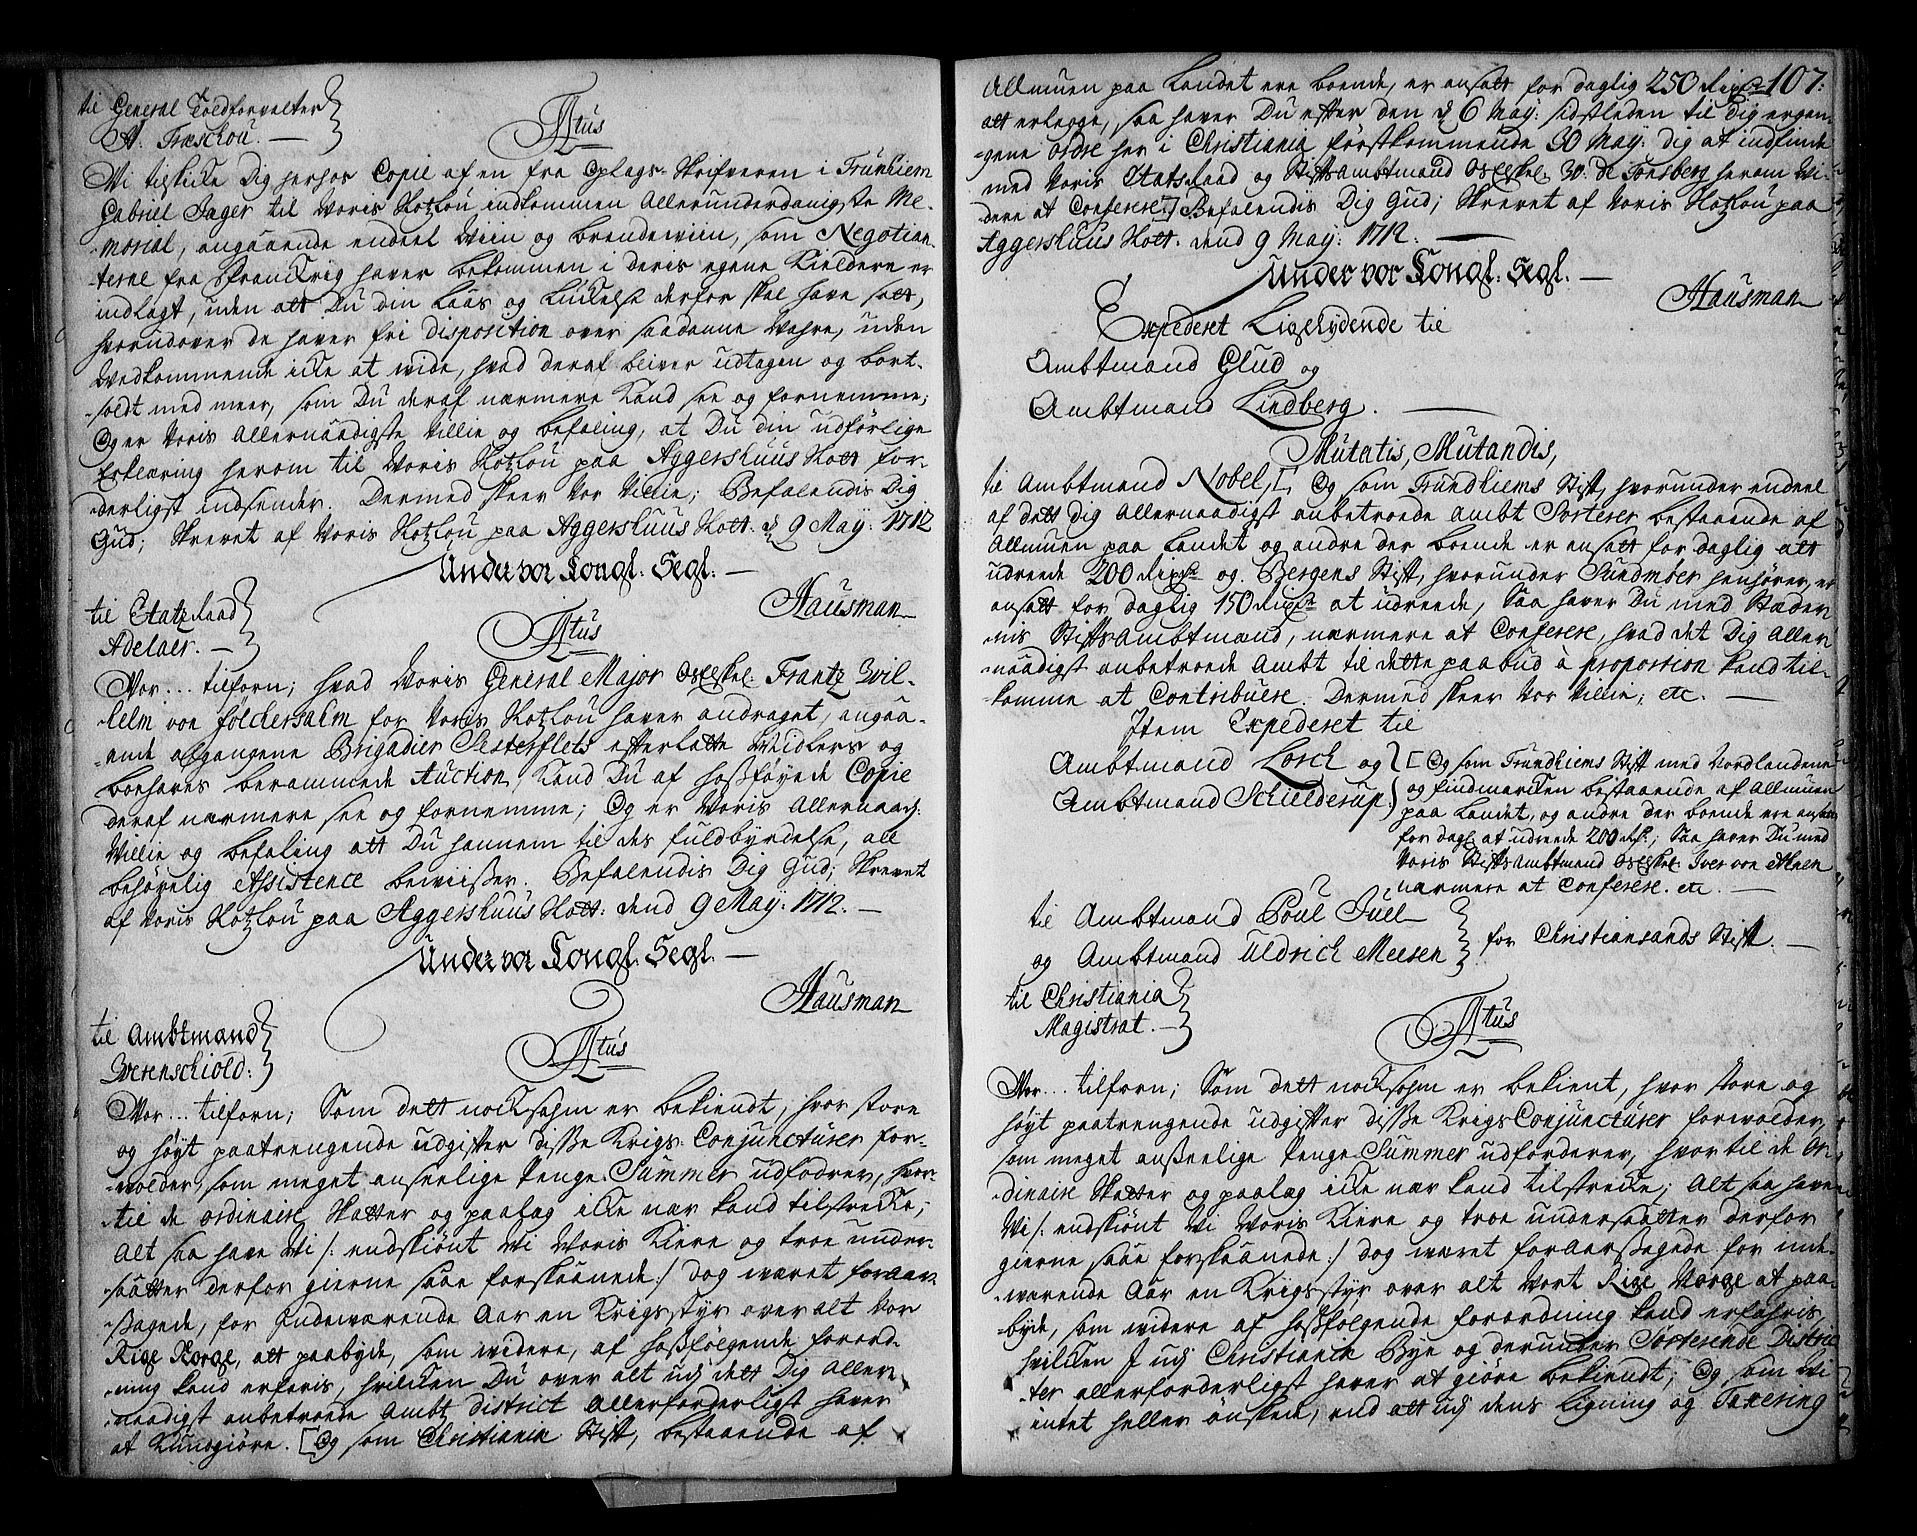 til General Toldforvalter
A. Træschou. —
Titus
Wi tilskicke Dig herhos Copie af en fra Oplags-Skrifveren i Trundhiem
Gabriel Jager til Voris Slotzlou indkommen Allerunderdanigste Me-
-morial, angaaende endeel Viin og brendeviin, som Negotian-
-terne fra Franckrig haver bekommen i deris egene Kieldere er
indlagt, uden att Du din Laas og Luckelse derfor skal have satt,
hvorudover de haver fri disposition over saadanne Wahre, uden
Vedkommende icke at vide, hvad deraf bliver udtagen og bort-
-soldt med meer, som Du deraf nærmere Kand see og fornemme;
Og er Voris Allernaadigste Villie og befaling, at Du din udførlige
Erklæring herom til Voris Slotzlou paa Aggershuus Slott for-
derligst indsender. Dermed skeer Vor Villie; Befalendis Dig
Gud; Skrevet af Voris Slotzlou paa Aggershuus Slott. d 9 May: 1712
Under vor Kongl. Segl. —
Hausman
til Etatz Raad
Adelaer. —
Titus
Vor... tilforn; hvad Voris General Major Os Elskel: Frantz Wil-
helm von Føldersalm for Voris Slotzlou haver andraget, angaa-
-ande afgangene Brigadier Sesterflets efterlatte Meidlers og
boehaves berammede Auction, Kand Du af hosføyede Copie
deraf nærmere see og fornemme; Og er Voris Allernaad:
Villie og befaling att Du hannem til des fuldbyrdelse, all
behøvelig Assistence beviisser. Befalendis Dig Gud; Skrevet
af Voris Slotzlou paa Aggershuus Slott: dend 9 May: 1712. —
Under vor Kongl. Segl. —
Hausman
til Ambtmand
Werenschiold:
Titus
Vor... tilforn; Som dett nocksohm er bekiendt, hvor store
og høyt paatrengende udgifter disse Krigs-Conjuncturer for-
-volder, som meget anseelige Penge-Summer udfodrer, hvor-
-til de ordinaire Skatter og paalag icke nær kand tilstrecke;
Alt saa have Wi /: endskiønt Wi Voris Kiere og troe under-
saatter derfor gierne saae forskaanede :/ dog været foraar-
-sagede, for Indeværende Aar en Krigsstyr over alt Vor
Rige Norge, att paabyde, som videre, af hosfølgende forord-
-ning kand erfaris, hvilcken Du over alt udj dett Dig Aller-
-naadigst anbetroede Ambtz district allerforderligst haver
at Kundgiøre. [Og som Christiania Stift, bestaaende af
107:
Allmuen paa Landet ere boende, er ansatt for daglig 250 Rixdr
att erlegge, saa haver Du efter den d 6 May: sidstleden til Dig ergan-
-gene ordre her i Christiania førstkommende 30 May: dig at indfinde
med Voris Etats Raad og Stiftsambtmand Os Elskel: W: de Tonsberg herom Wi-
dere at Conferere.] Befalendis Dig Gud; Skrevet af Voris Slotzlou paa
Aggershuus Slott. dend 9 May: 1712. —
Under vor Kongl. Segl. —
Hausman
Expederet Ligelydende til
Ambtmand Glud og
Ambtmand Lindberg. —
Mutatis, Mutandis,
til Ambtmand Nobel, [Og som Trundhiems Stift, hvorunder endeel
af dett dig Allernaadigst anbetroede Ambt Sorterer bestaaende af
Allmuen paa Landet og andre der boende er ansatt for daglig att
udreede 200 Rixdr og Bergens Stift, hvorunder Sundmøer henhører, er
ansatt for daglig 150 Rixdr at udreede, Saa haver Du med Stæder-
-nis Stiftsambtmænd, nærmere at Conferere, hvad det Dig Aller-
-naadigst anbetroede Ambt til dette paabud à proportion kand til-
-komme at Contribuere. Dermed skeer Vor Villie; etc. —
Item Expederet til
Ambtmand Lorch og
Ambtmand Schielderup.
[Og som Trundhiems Stift med Nordlandene
og findmarcken bestaaende af Allmuen
paa Landet, og andre der boende ere ansatt
for dagl at udreede 200 Rdr; Saa haver Du med
Voris Stiftsambtmand Os Elskel: Iver von Ahnen
nærmere at Conferere. etc. —
til Ambtmand Poul Juel
og Ambtmand Uldrich Meesen
for Christiansands Stift. —
til Christiania
Magistrat. —
Titus
Vor... tilforn; Som dett nocksohm er bekient, hvor store og
høyt paatrengende udgifter disse Krigs Conjuncturer forvolder,
som meget ansseelige Penge-Summer udforderer, hvor til de Or-
-dinaire Skatter og paalag icke nær kand tilstrecke; Alt saa have
Wi /: endskiønt Wi Voris Kiere og troe undersaatter derfor
gierne saae forskaanede :/ dog været foraarssagede for inde-
-værende Aar en Krigsstyr over alt Vort Rige Norge at paa-
byde, som videre af hosfølgende forordning kand erfahris,
hvilcken I udj Christiania Bye og derunder Sorterende Distric-
ter allerforderligst haver at giøre bekiendt; Og som Wi
intet heller ønskede, end att udj dens ligning og Taxering